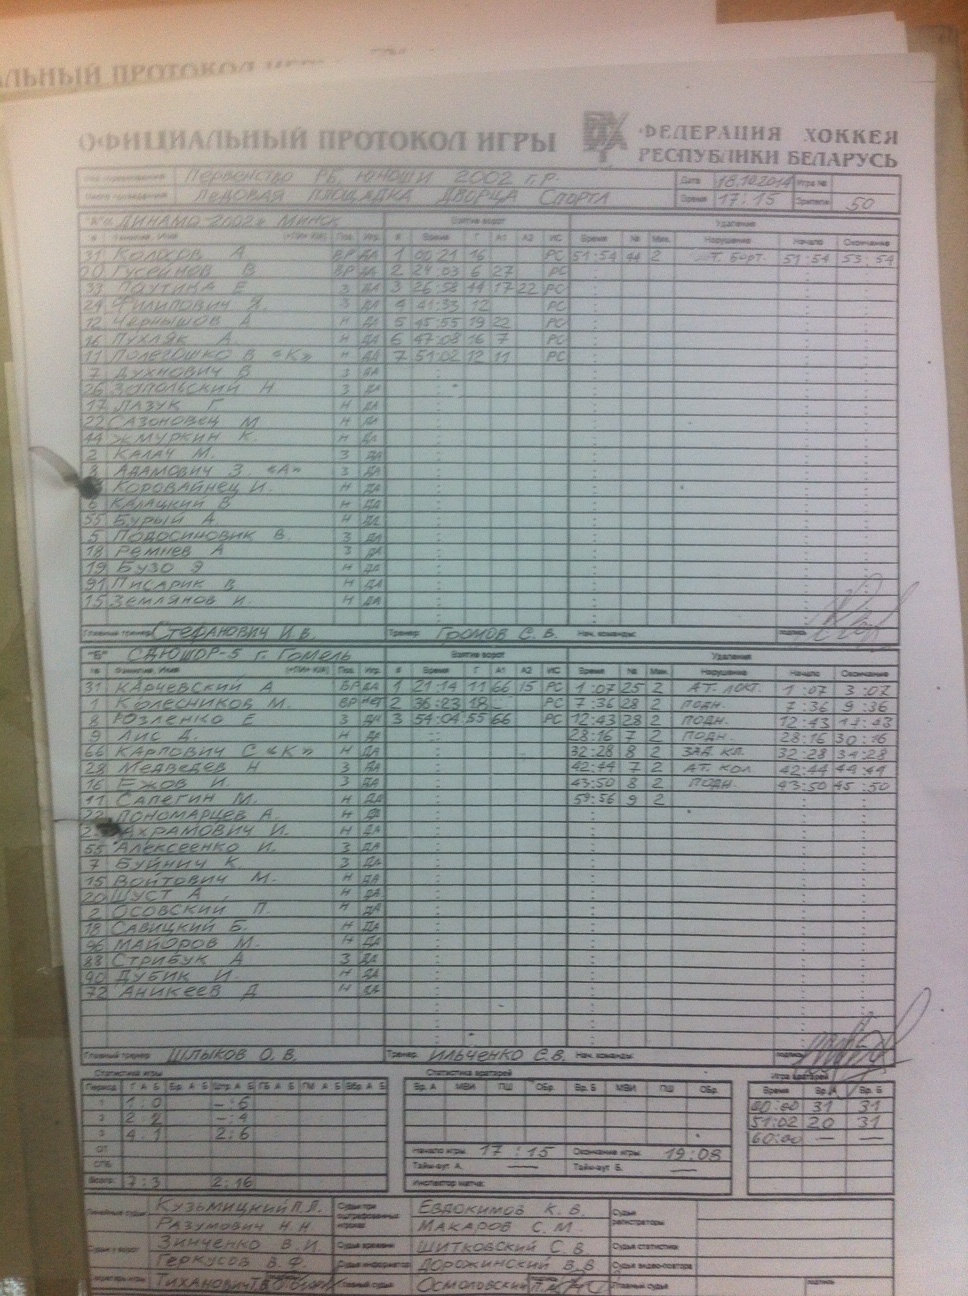 АЛЬНЫЙ ПРОТОКОЛ
ОФИЦИАЛЬНЫЙ ПРОТОКОЛ ИГРЫ
ФЕДЕРАЦИЯ ХОККЕЯ
РЕСПУБЛИКИ БЕЛАРУСЬ
Первенство РБ, юноши 2002 г.р. Дата 18.10.2014 Игра №
Ледовая площадка Дворца Спорта Время 17:15 Зрители 50
"А" «Динамо-2002» Минск Взятие ворот Удаления
№ Фамилия, Имя Поз. Игр. # Время Г А1 А2 ИС Время № Мин. Нарушение Начало Окончание
31 Колосов А ВР ДА 1 00:21 16 РС 51:54 44 2 ат. борт. 51:54 53:54
20 Гусейнов В ВР ДА 2 24:03 6 27 РС
33 Паутина Е З ДА 3 26:58 44 17 22 РС
24 Филипович Я. З ДА 4 41:33 12 РС
12 Чернышов А Н ДА 5 45:55 19 22 РС
16 Пухляк А. Н ДА 6 47:08 16 7 РС
11 Полегошко В «К» Н ДА 7 51:02 12 11 РС
7 Духнович В З ДА
26 Запольский Н З ДА
17 Лазук Г Н ДА
22 Сазоновец М Н ДА
44 Жмуркин К. Н ДА
2 Калач М. З ДА
8 Адамович З «А» З ДА
Коровайнец И. Н ДА
6 Калацкий В Н ДА
55 Бурый А Н ДА
5 Подосиновик В. З ДА
18 Ремнев А З ДА
19 Бузо Э Н ДА
91 Писарик В Н ДА
15 Землянов И. Н ДА
Главный тренер Стефанович И.В. Тренер: Громов С.В. Нач. команды: подпись
"Б" СДЮШОР-5 г. Гомель Взятие ворот Удаления
№ Фамилия, Имя Поз. Игр. # Время Г А1 А2 ИС Время № Мин. Нарушение Начало Окончание
31 Карчевский А ВР ДА 1 21:14 11 66 15 РС 1:07 25 2 ат. локт. 1:07 3:07
1 Колесников М. ВР НЕТ 2 36:23 18 РС 7:36 28 2 подн. 7:36 9:36
8 Юзленко Е З ДА 3 54:04 55 66 РС 12:43 28 2 подн. 12:43 14:43
9 Лис Д. Н ДА 28:16 7 2 подн. 28:16 30:16
66 Карпович С «К» Н ДА 32:28 8 2 зад. кл. 32:28 34:28
28 Медведев Н З ДА 42:44 7 2 ат. кол. 42:44 44:44
16 Ежов И. З ДА 43:50 8 2 подн. 43:50 45:50
11 Сапегин М. Н ДА 59:56 9 2
22 Пономарцев А. Н ДА
Ахрамович И. Н ДА
55 Алексеенко И. З ДА
7 Буйнич К. З ДА
15 Войтович М. Н ДА
20 Шуст А. Н ДА
2 Осовский П. Н ДА
18 Савицкий Б. Н ДА
96 Майоров М. Н ДА
88 Стрибук А З ДА
90 Дубик И. Н ДА
72 Аникеев Д Н ДА
Главный тренер Шлыков О.В. Тренер: Ильченко С.В. Нач. команды: подпись
Статистика игры Статистика вратарей Игра вратарей
Период Г А Б Бр. А Б Штр. А Б ГБ А Б ГМ А Б Вбр А Б Вр. А МВИ ПШ ОБр. Вр. Б МВИ ПШ ОБр. Время Вр. А Вр. Б
1 1:0 -:6 00:00 31 31
2 2:2 -:4 51:02 20 31
3 4:1 2:6 60:00 — —
ОТ Начало игры 17:15 Окончание игры 19:08
СПБ Тайм-аут А. — Тайм-аут Б. —
Всего: 7:3 2:16 Инспектор матча:
Линейные судьи Кузьмицкий П.Л. Судьи при оштрафованных игроках Евдокимов К.В. Судьи регистраторы
Разумович Н.Н Макаров С.М.
Судьи у ворот Зинченко В.И. Судья времени Шитковский С.В. Судья статистики
Геркусов В.Ф. Судья информатор Дорожинский В.В Судьи видео-повтора
Секретарь игры Тиханович Главный судья Осмоловский Главный судья подпись